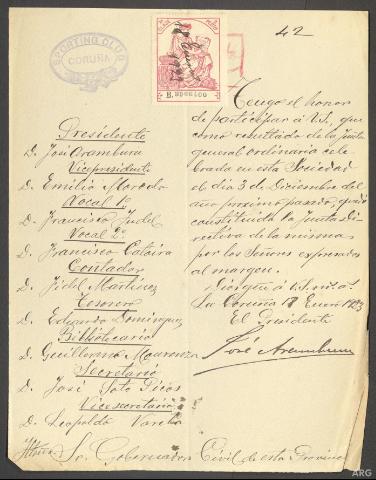 SPORTING CLUB
CORUÑA
42
Presidente
D. José Aramburu
Vicepresidente
D. Emilio Macedo
Vocal 1º
D. Francisco Judel
Vocal 2º
D. Francisco Catoira
Contador
D. Fidel Martinez
Tesorero
D. Eduardo Dominguez
Bibliotecario
D. Guillermo
Secretario
D. José Soto
Vicesecretario
D. Leopoldo Varela
Tengo el honor
de participar á V.S. que
como resultado de la Junta
general ordinaria cele
brada en esta Sociedad
el dia 3 de Diciembre del
año proximo pasado, quedó
constituida la Junta Di
rectiva de la misma
por los Señores expresados
al margen.
Dios gue. á V.S. m.s a.s
La Coruña 18 Enero
El Presidente
José Aramburu
Sr. Gobernador Civil de esta Provincia
ARG